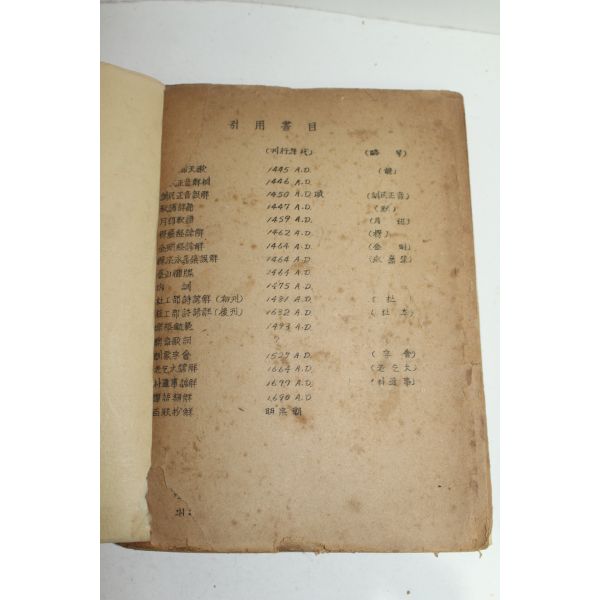 引用書目
(刊行年代) (略号)
天歌 1445 A.D. (龍)
正音解例 1446 A.D.
訓民正音諺解 1450 A.D.頃 (訓民正音)
釋譜詳節 1447 A.D. (釋)
月印釋譜 1459 A.D. (月印)
楞嚴經諺解 1462 A.D. (楞)
金剛經諺解 1464 A.D. (金剛)
禪宗永嘉集諺解 1464 A.D. (永嘉集)
五臺山 1464 A.D.
內訓 1475 A.D.
杜工部詩諺解 (初刊) 1481 A.D. (杜)
杜工部詩諺解 (重刊) 1632 A.D. (杜重)
樂學軌範 1493 A.D.
歌詞 ?
訓蒙字會 1527 A.D. (字會)
老乞大諺解 1664 A.D. (老乞大)
朴通事諺解 1677 A.D. (朴通事)
譯語類解 1690 A.D.
抄解 明宗朝